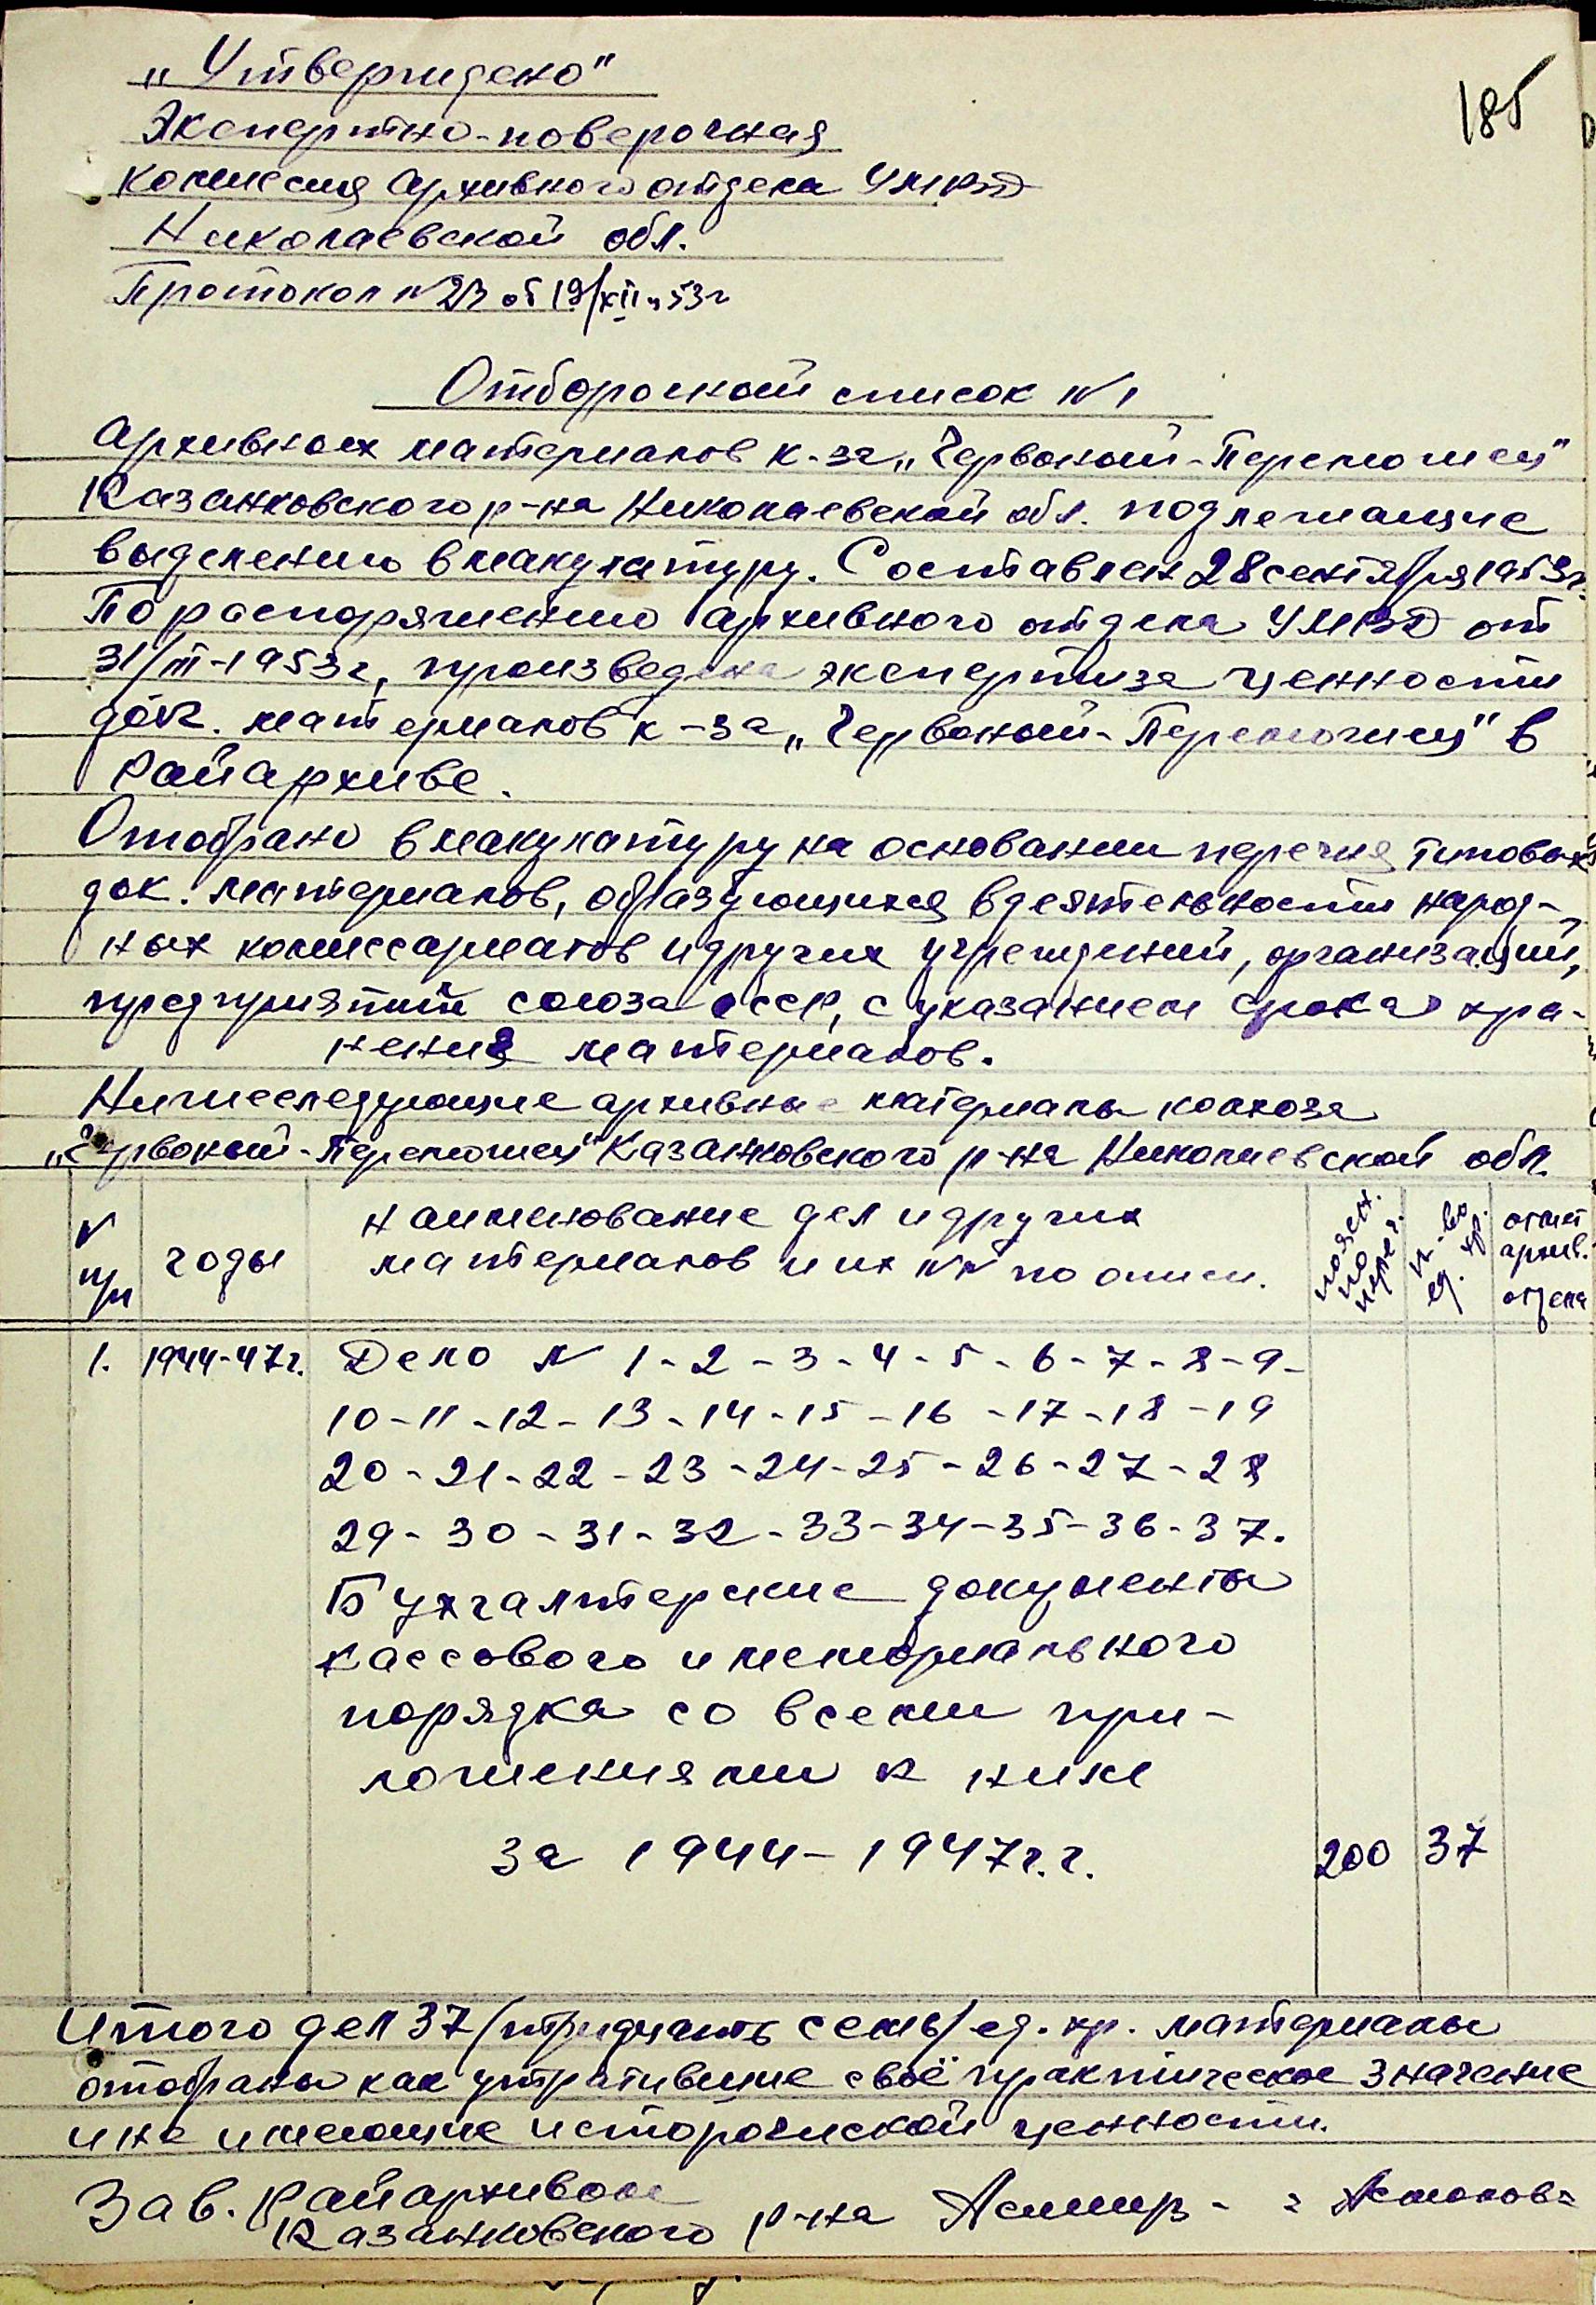 185
„Утверждено"
Экспертно-поверочная
комиссия Архивного отдела УМВД
Николаевской обл.
Протокол №23 от 19/XII 53г
Отборочный список №1
Архивных материалов к-за „Червоный-Переможец"
Казанковского р-на Николаевской обл. подлежащие
выделению в макулатуру. Составлен 28 сентября 1953г.
По распоряжению архивного отдела УМВД от
31/III-1953г, произведена экспертиза ценности
док. материалов к-за „Червоный-Переможец" в
Райархиве.
Отобрано в макулатуру на основании перечня типовых
док. материалов, образующихся в деятельности народ-
ных комиссариатов и других учреждений, организаций,
предприятий союза ССР, с указанием срока хра-
нения материалов.
Нижеследующие архивные материалы колхоза
„Червоный-Переможец" Казанковского р-на Николаевской обл.
№ п/п годы наименование дел и других материалов и их №№ по описи. по перечн. к-во ед. хр. отмет архив. отдела
1. 1944-47г. Дело № 1-2-3-4-5-6-7-8-9-
10-11-12-13-14-15-16-17-18-19
20-21-22-23-24-25-26-27-28
29-30-31-32-33-34-35-36-37.
Бухгалтерские документы
кассового и мемориального
порядка со всеми при-
ложениями к ним
за 1944-1947г.г. 200 37
Итого дел 37/тридцать семь/ед. хр. материалы
отобраны как утратившие своё практическое значение
и не имеющие исторической ценности.
Зав. Райархивом
Казанковского р-на